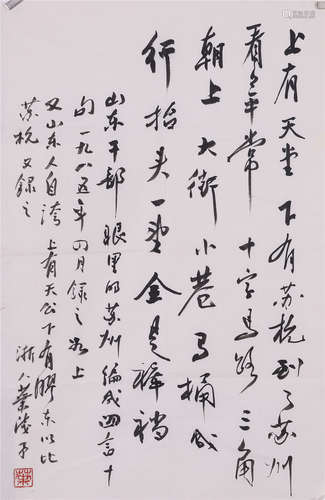 上有天堂 下有苏杭 到了苏州
看看平常 十字马路 三角
朝上 大街小巷 马桶成
行 抬头一望 全是裤裆
山东干部眼里的苏州 编成四言十
句 一九八五年四月录之如上
又山东人自夸 上有天公下有胶东以比
苏杭 又录之
浙人叶浅予